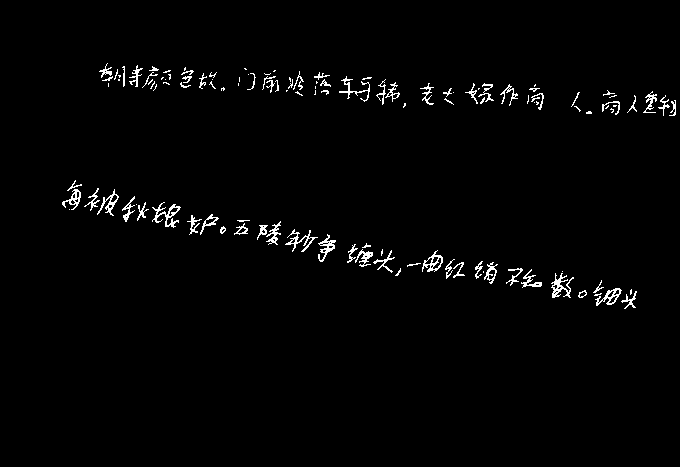 朝来颜色故。门前冷落车马稀，老大嫁作商人。商人重利
每被秋娘妒。五陵年少争缠头，一曲红绡不知数。钿头